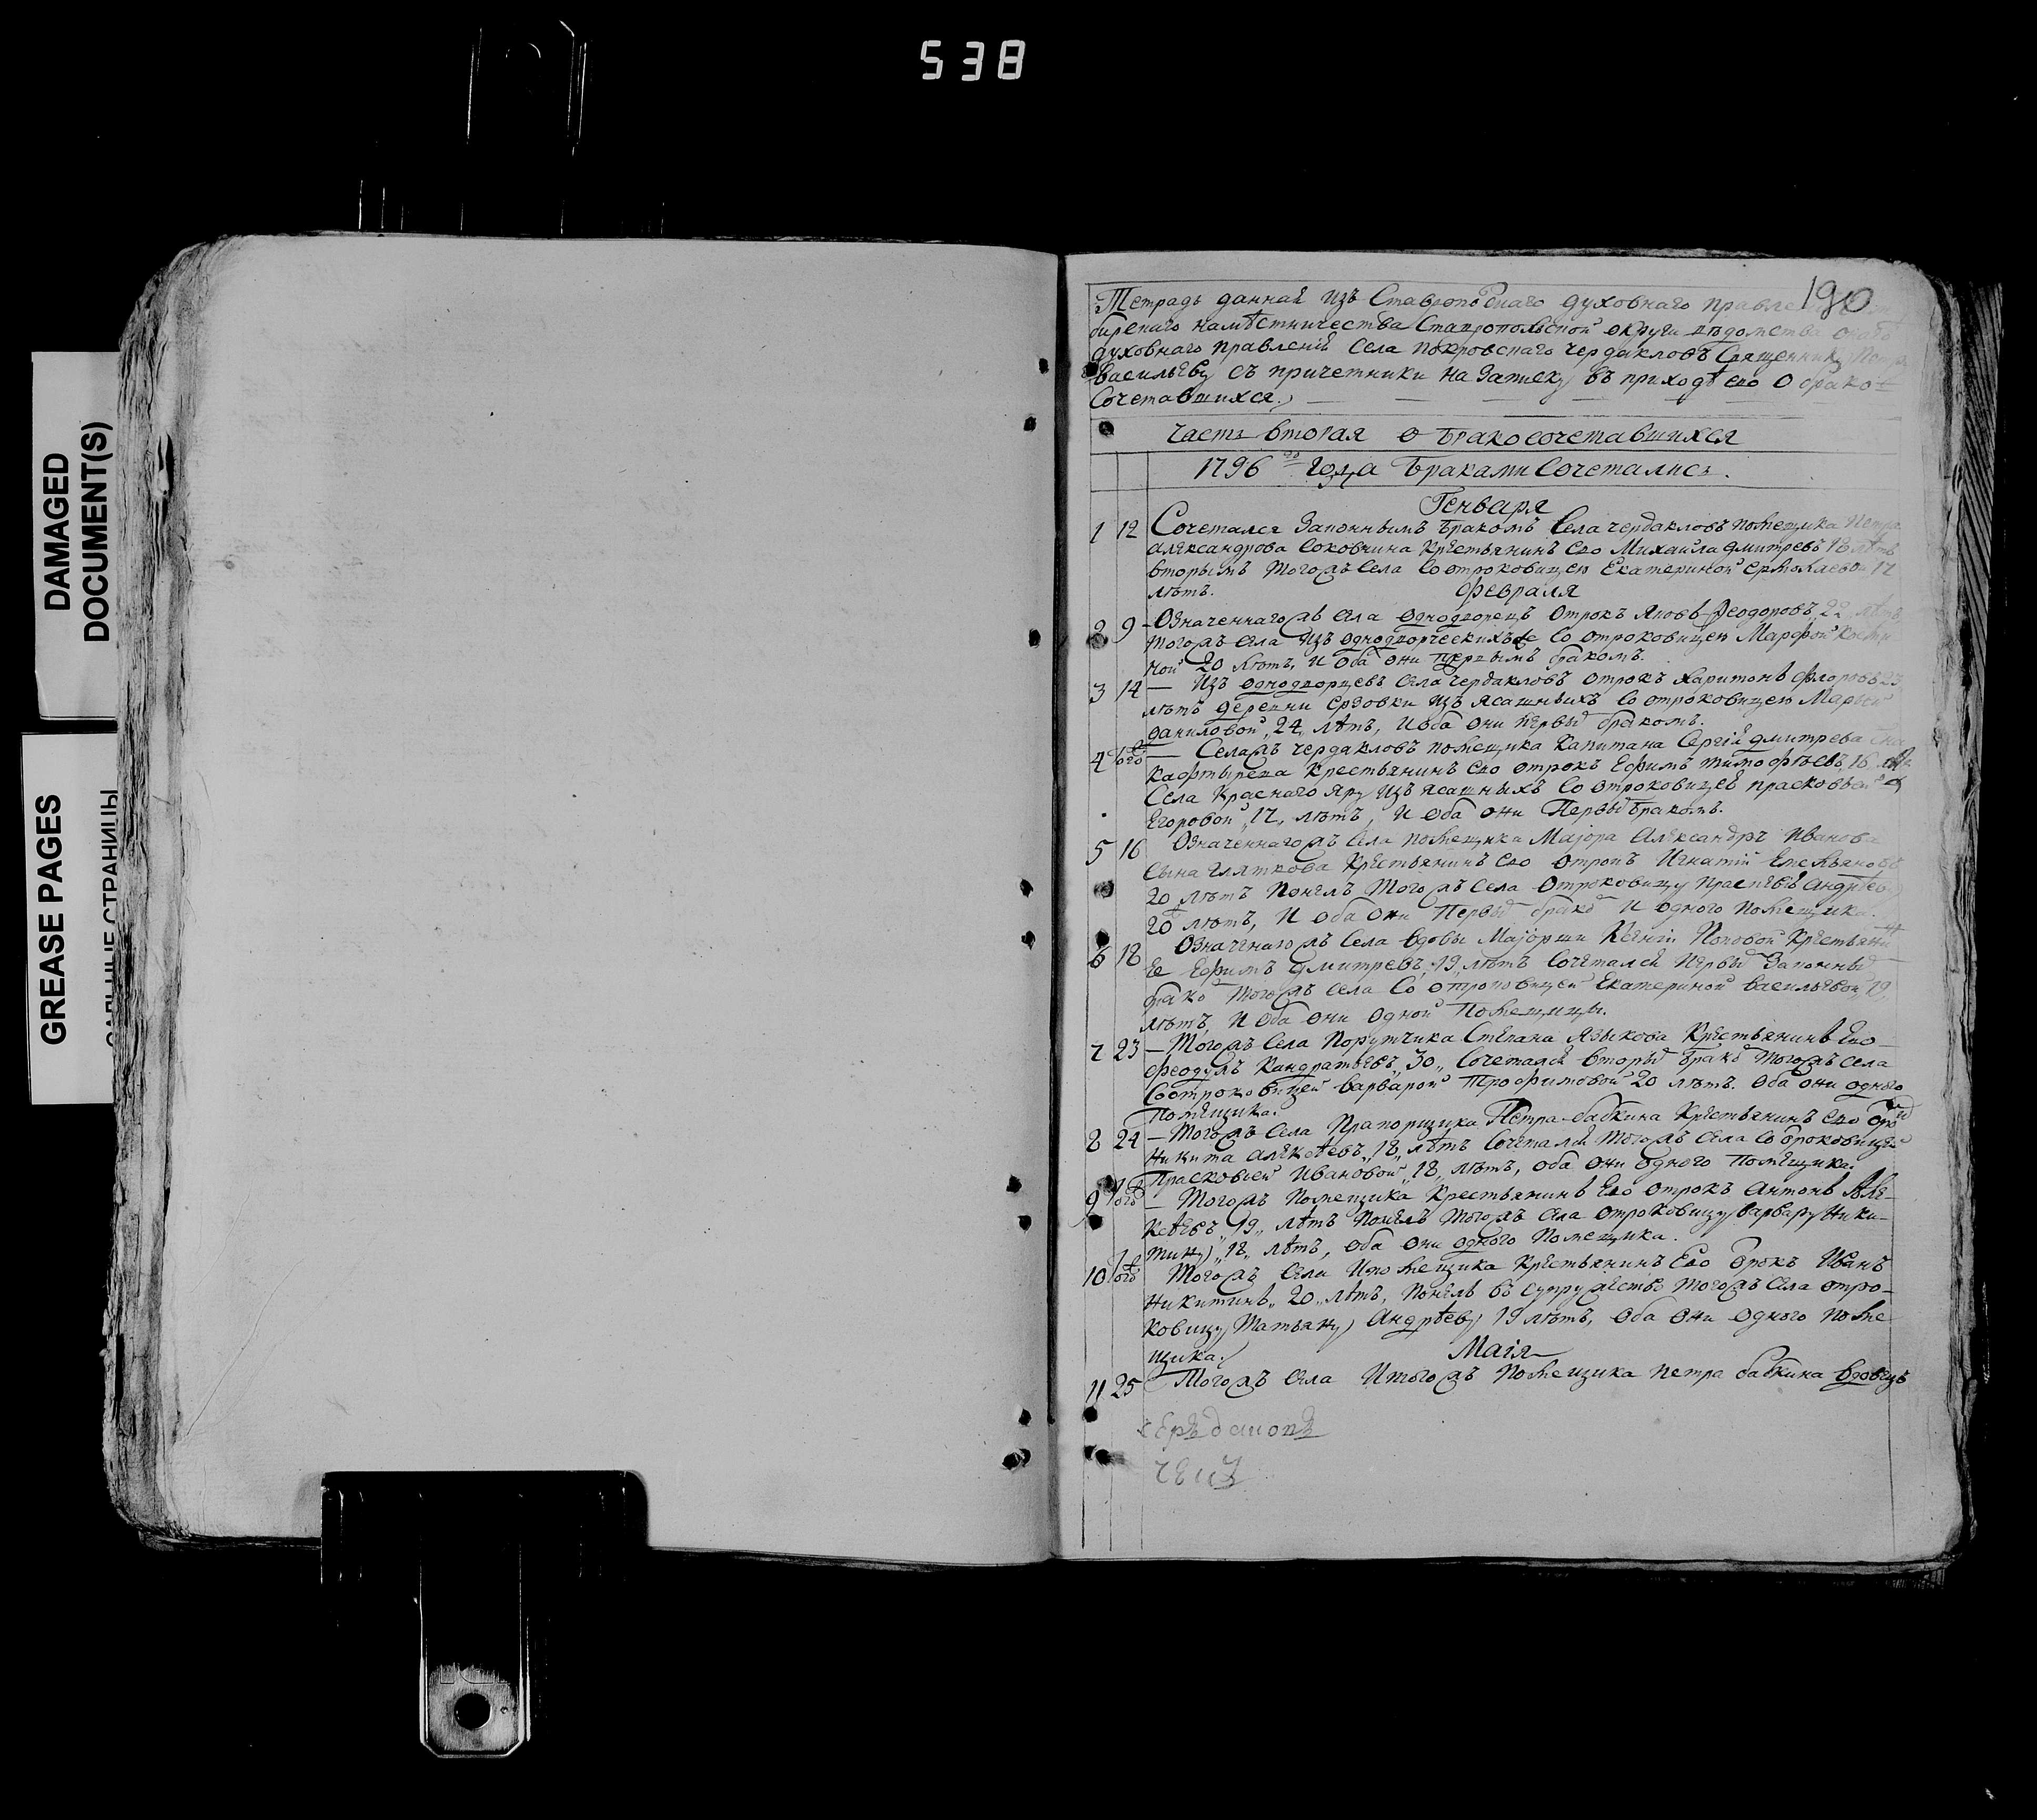 538
DAMAGED
DOCUMENT(S)
GREASE PAGES
САЛЬНЫЕ СТРАНИЦЫ
190
Тетрадь данная изъ Ставропольскаго духовнаго правле
бирскаго намѣстничества Ставропольской округи вѣдомства
духовнаго правленїя Села Покровскаго Чердакловъ Священнику Петру
Васильеву съ причетники на записку въ приходѣ ево о брако
Сочетавшихся.
Часть вторая о бракосочетавшихся
1796 го года браками Сочетались.
Генваря
1 12 Сочетался законнымъ бракомъ Села чердакловъ помещика Петра
александрова Соковнина Крестьянинъ ево Михайла дмитревъ 18 лѣтъ
вторымъ тогожъ села со отроковицею Екатериной ермолаевой 17
лѣтъ. Февраля
2 9 Означеннагожъ села однодворецъ отрокъ Яковъ Феодоровъ 22 лѣтъ
тогожъ села изъ однодворческихъ со отроковицею Марфой
ной 20 лѣтъ, и оба они первымъ бракомъ.
3 14 — Изъ однодворцевъ села чердакловъ отрокъ харитонъ флоровъ 23
лѣтъ деревни изъ ясашныхъ со отроковицею Марьей
даниловой „24„ лѣтъ, и оба они первы бракомъ.
4 того — Селажъ чердакловъ помещика Капитана Сергїя дмитрева
Кафтырева крестьянинъ ево отрокъ Ефимъ тимофѣевъ, 16
Села Краснаго Яру изъ ясашныхъ со отроковицей прасковьей
Егоровой „17„ лѣтъ, и оба они Первы бракомъ.
5 16 Означеннагожъ села помещика Маіора Александра Иванова
сына глядкова Крестьянинъ ево отрокъ Игнатїй Емельяновъ
20 лѣтъ понялъ тогожъ села отроковицу Андрѣев
20 лѣтъ, и оба они Первы брако и одного помещика.
6 18 Означенагожъ села вдовы Маіорши Поповой Крестьянин
Ее Ефимъ дмитревъ „19„ лѣтъ Сочетался первы законны
брако тогожъ села со отроковицей Екатериной васильевой „19„
лѣтъ, и оба они одной помещицы.
7 23 — Тогожъ села Порутчика Степана Языкова Крестьянинъ Ево
феодулъ Кандратьевъ „30„ Сочетался вторы брако тогожъ села
Соотроковицей варварой Трофимовой 20 лѣтъ. оба они одного
помещика.
8 24 — Тогожъ села Прапорщика Петра бабкина Крестьянинъ ево
Никита алексѣевъ „18„ лѣтъ Сочетался тогожъ села со троковицей
Прасковїей Ивановой „18„ лѣтъ, оба они одного помещика.
9 того — Тогожъ помещика Крестьянинъ Ево отрокъ антонъ але-
ксѣевъ „19„ лѣтъ понялъ тогожъ села отроковицу варвару ники-
тину „18„ лѣтъ, оба они одного помещика.
10 того Тогожъ села и помещика Крестьянинъ Ево Иванъ
Никитинъ „20„ лѣтъ, понялъ въ супружество тогожъ села отро-
ковицу татьяну Андрѣеву 19 лѣтъ, оба они одного поме
щика. Маія
11 25 Тогожъ села и тогожъ помещика петра бабкина вдовецъ